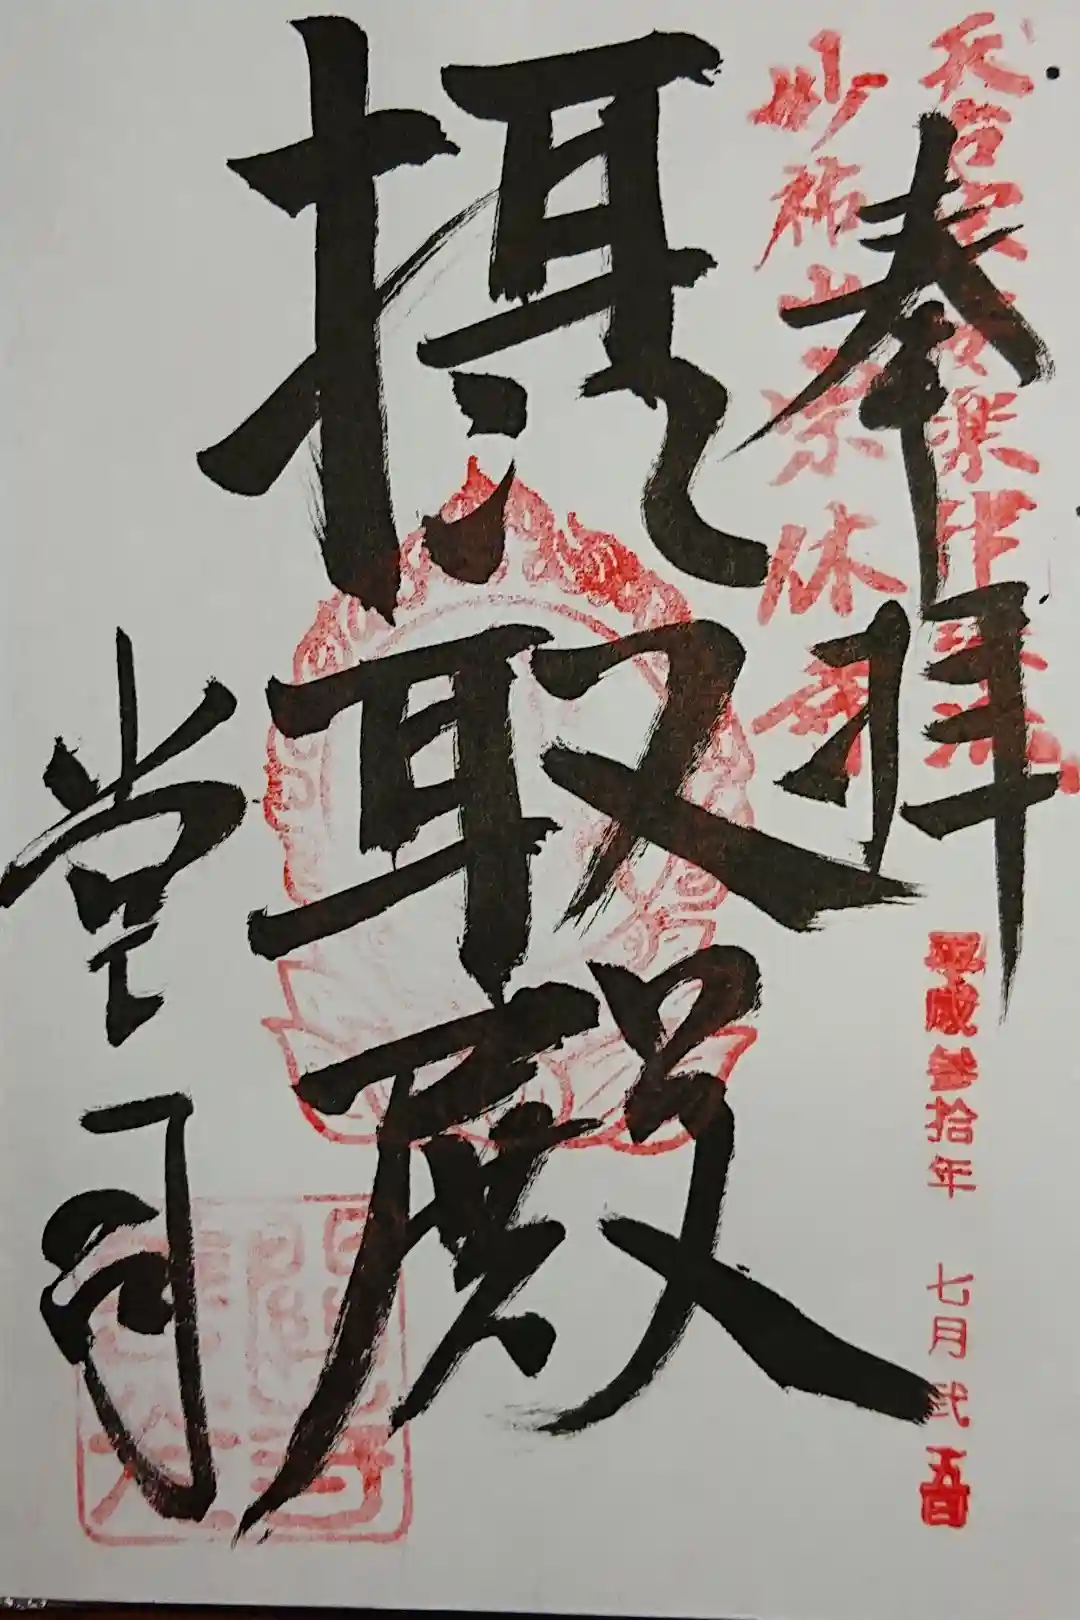 天台宗安楽律法流
妙祐山宗休寺
奉拝
平成参拾年 七月弐五日
摂取殿
堂司